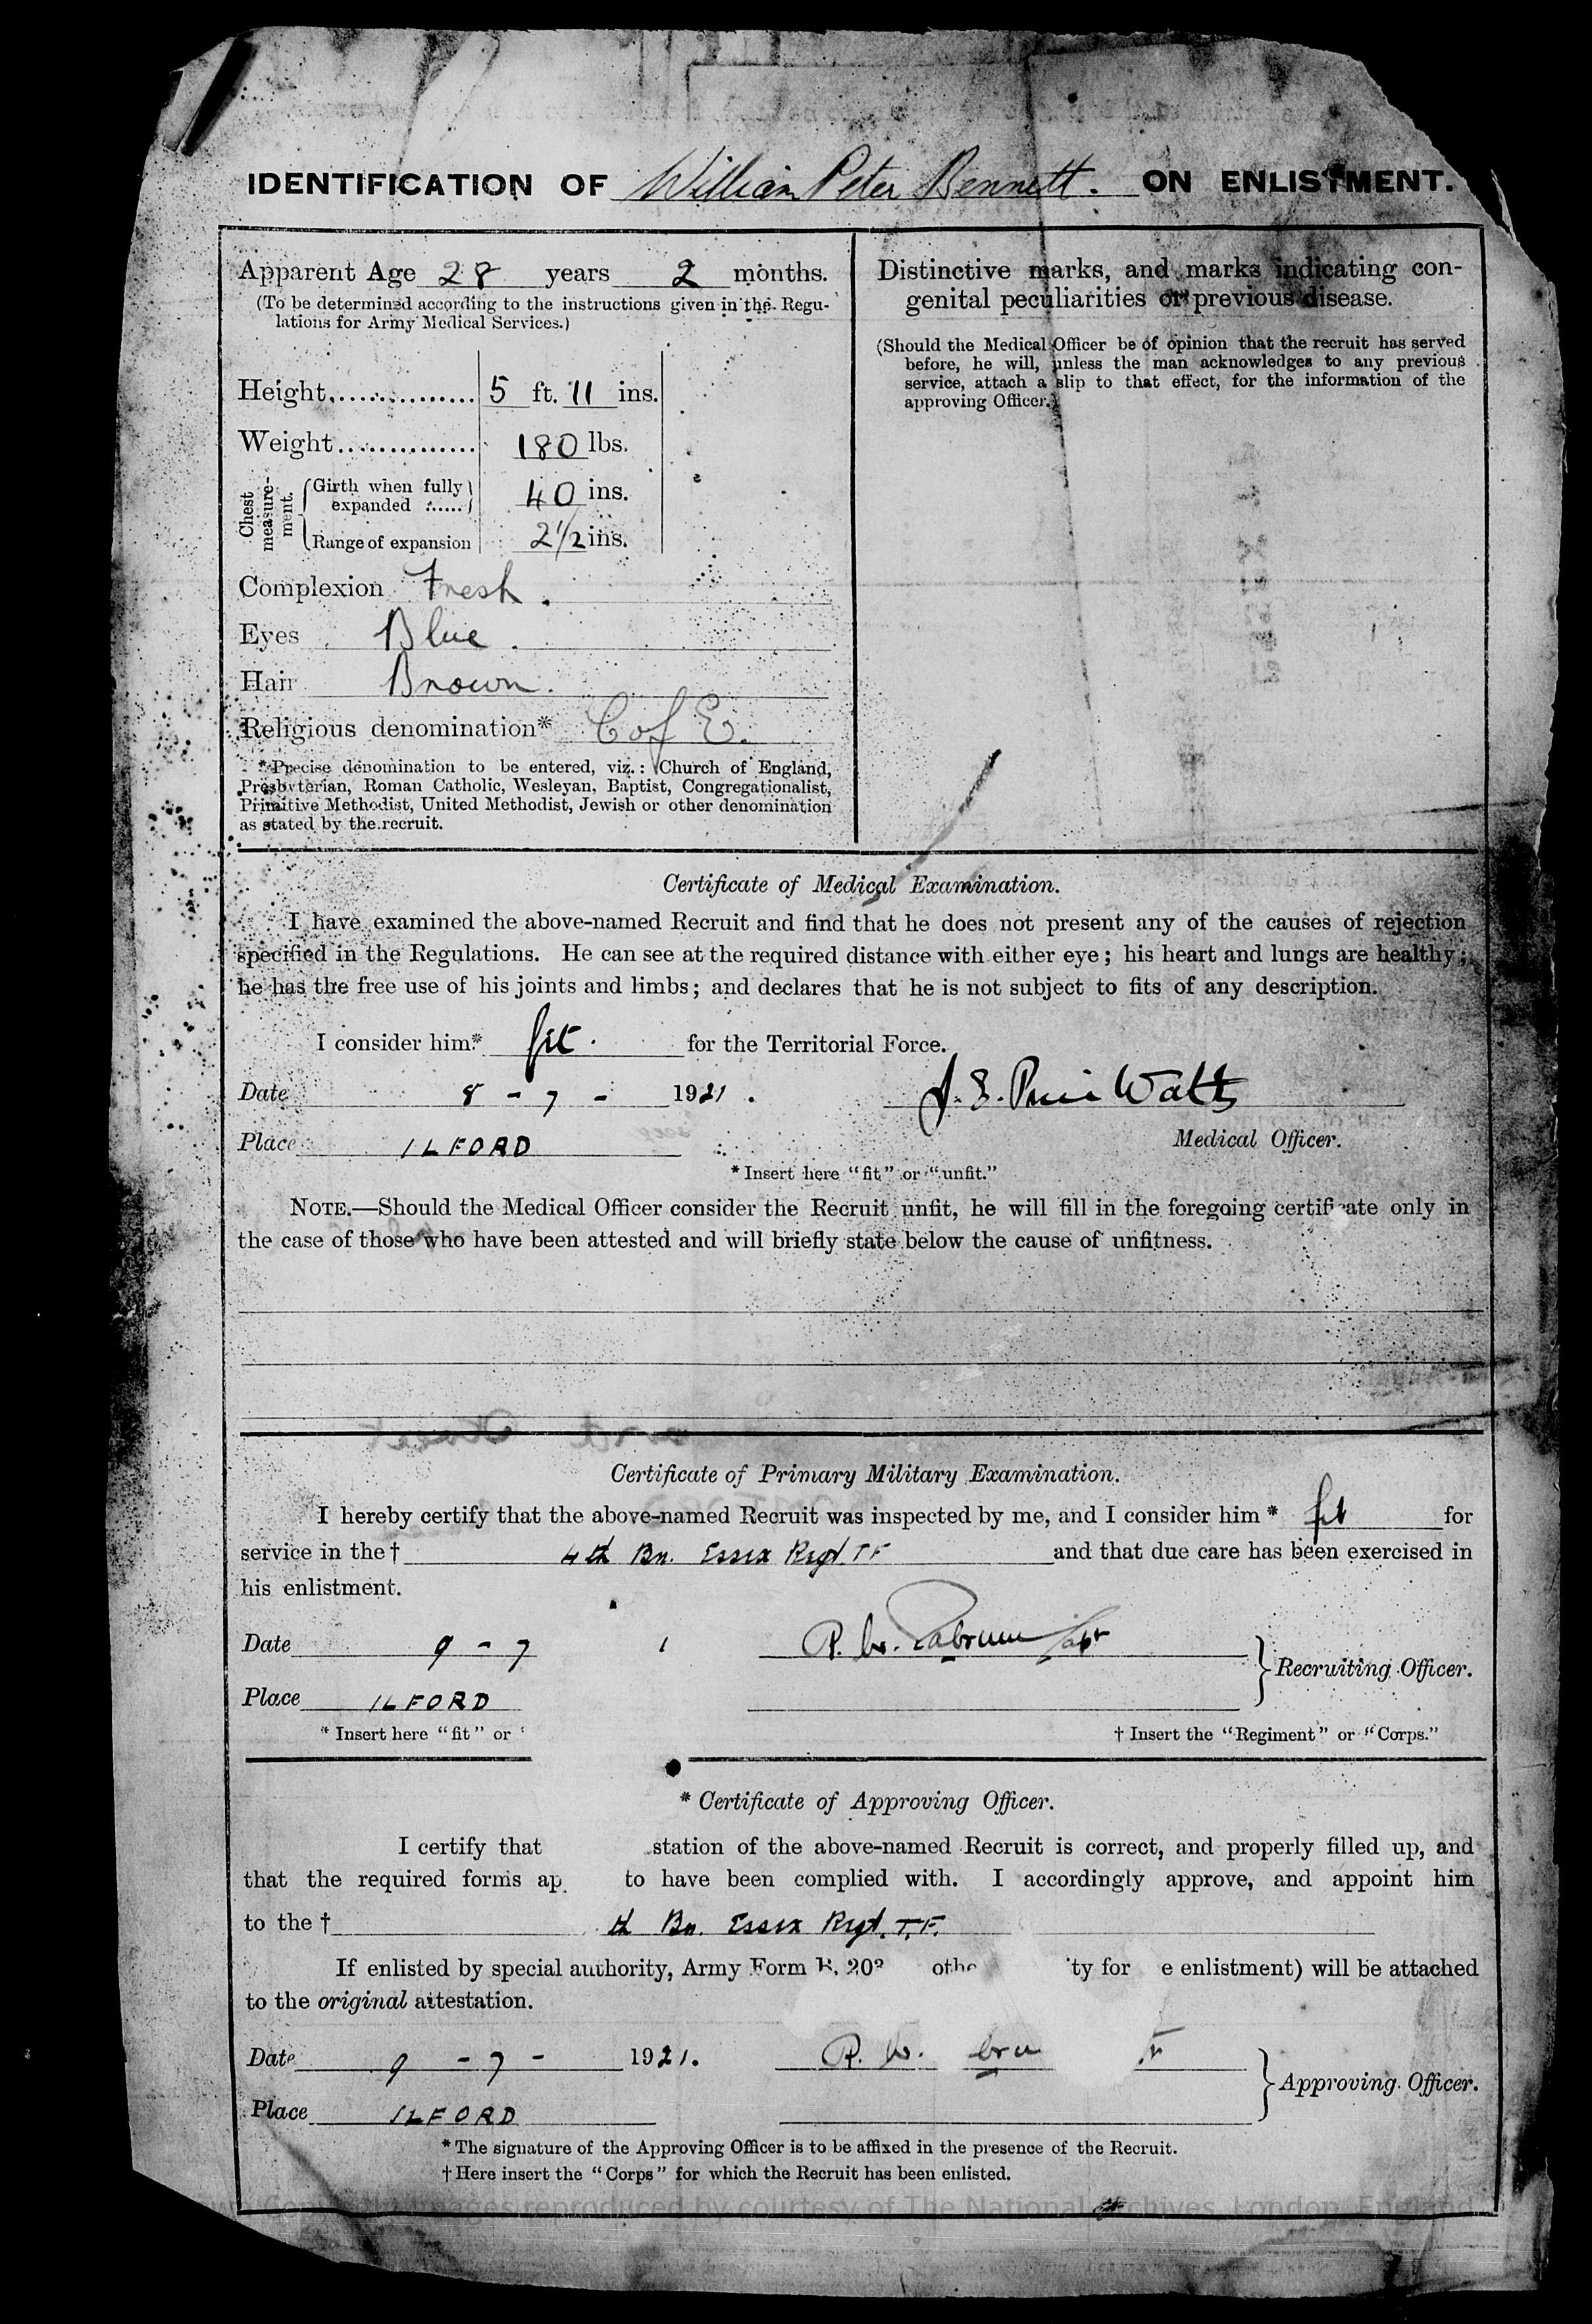 IDENTIFICATION OF William Peter Bennett. ON ENLISTMENT.
Apparent Age 28 years 2 months.
(To be determined according to the instructions given in the Regu-
lations for Army Medical Services.)
Height 5 ft. 11 ins.
Weight 180 lbs.
Chest measure-ment.
Girth when fully
expanded 40 ins.
Range of expansion 2 1/2 ins.
Complexion Fresh.
Eyes Blue.
Hair Brown.
Religious denomination* C of E.
*Precise denomination to be entered, viz.: Church of England,
Presbyterian, Roman Catholic, Wesleyan, Baptist, Congregationalist,
Primitive Methodist, United Methodist, Jewish or other denomination
as stated by the recruit.
Distinctive marks, and marks indicating con-
genital peculiarities or previous disease.
(Should the Medical Officer be of opinion that the recruit has served
before, he will, unless the man acknowledges to any previous
service, attach a slip to that effect, for the information of the
approving Officer.)
Certificate of Medical Examination.
I have examined the above-named Recruit and find that he does not present any of the causes of rejection
specified in the Regulations. He can see at the required distance with either eye; his heart and lungs are healthy;
he has the free use of his joints and limbs; and declares that he is not subject to fits of any description.
I consider him* fit. for the Territorial Force.
Date 8 - 7 - 1921.
Watts
Place ILFORD
Medical Officer.
* Insert here "fit" or "unfit."
NOTE.—Should the Medical Officer consider the Recruit unfit, he will fill in the foregoing certificate only in
the case of those who have been attested and will briefly state below the cause of unfitness.
Certificate of Primary Military Examination.
I hereby certify that the above-named Recruit was inspected by me, and I consider him * fit for
service in the † 4th Bn. Essex Regt TF and that due care has been exercised in
his enlistment.
Date 9 - 7
R. W. Capt
Recruiting Officer.
Place ILFORD
* Insert here "fit" or
† Insert the "Regiment" or "Corps."
* Certificate of Approving Officer.
I certify that station of the above-named Recruit is correct, and properly filled up, and
that the required forms ap to have been complied with. I accordingly approve, and appoint him
to the † th Bn. Essex Regt. T.F.
If enlisted by special authority, Army Form B. 203 othe ty for e enlistment) will be attached
to the original attestation.
Date 9 - 7 - 1921.
R. W.
Approving Officer.
Place ILFORD
* The signature of the Approving Officer is to be affixed in the presence of the Recruit.
† Here insert the "Corps" for which the Recruit has been enlisted.
images reproduced by courtesy of The National Archives, London, England